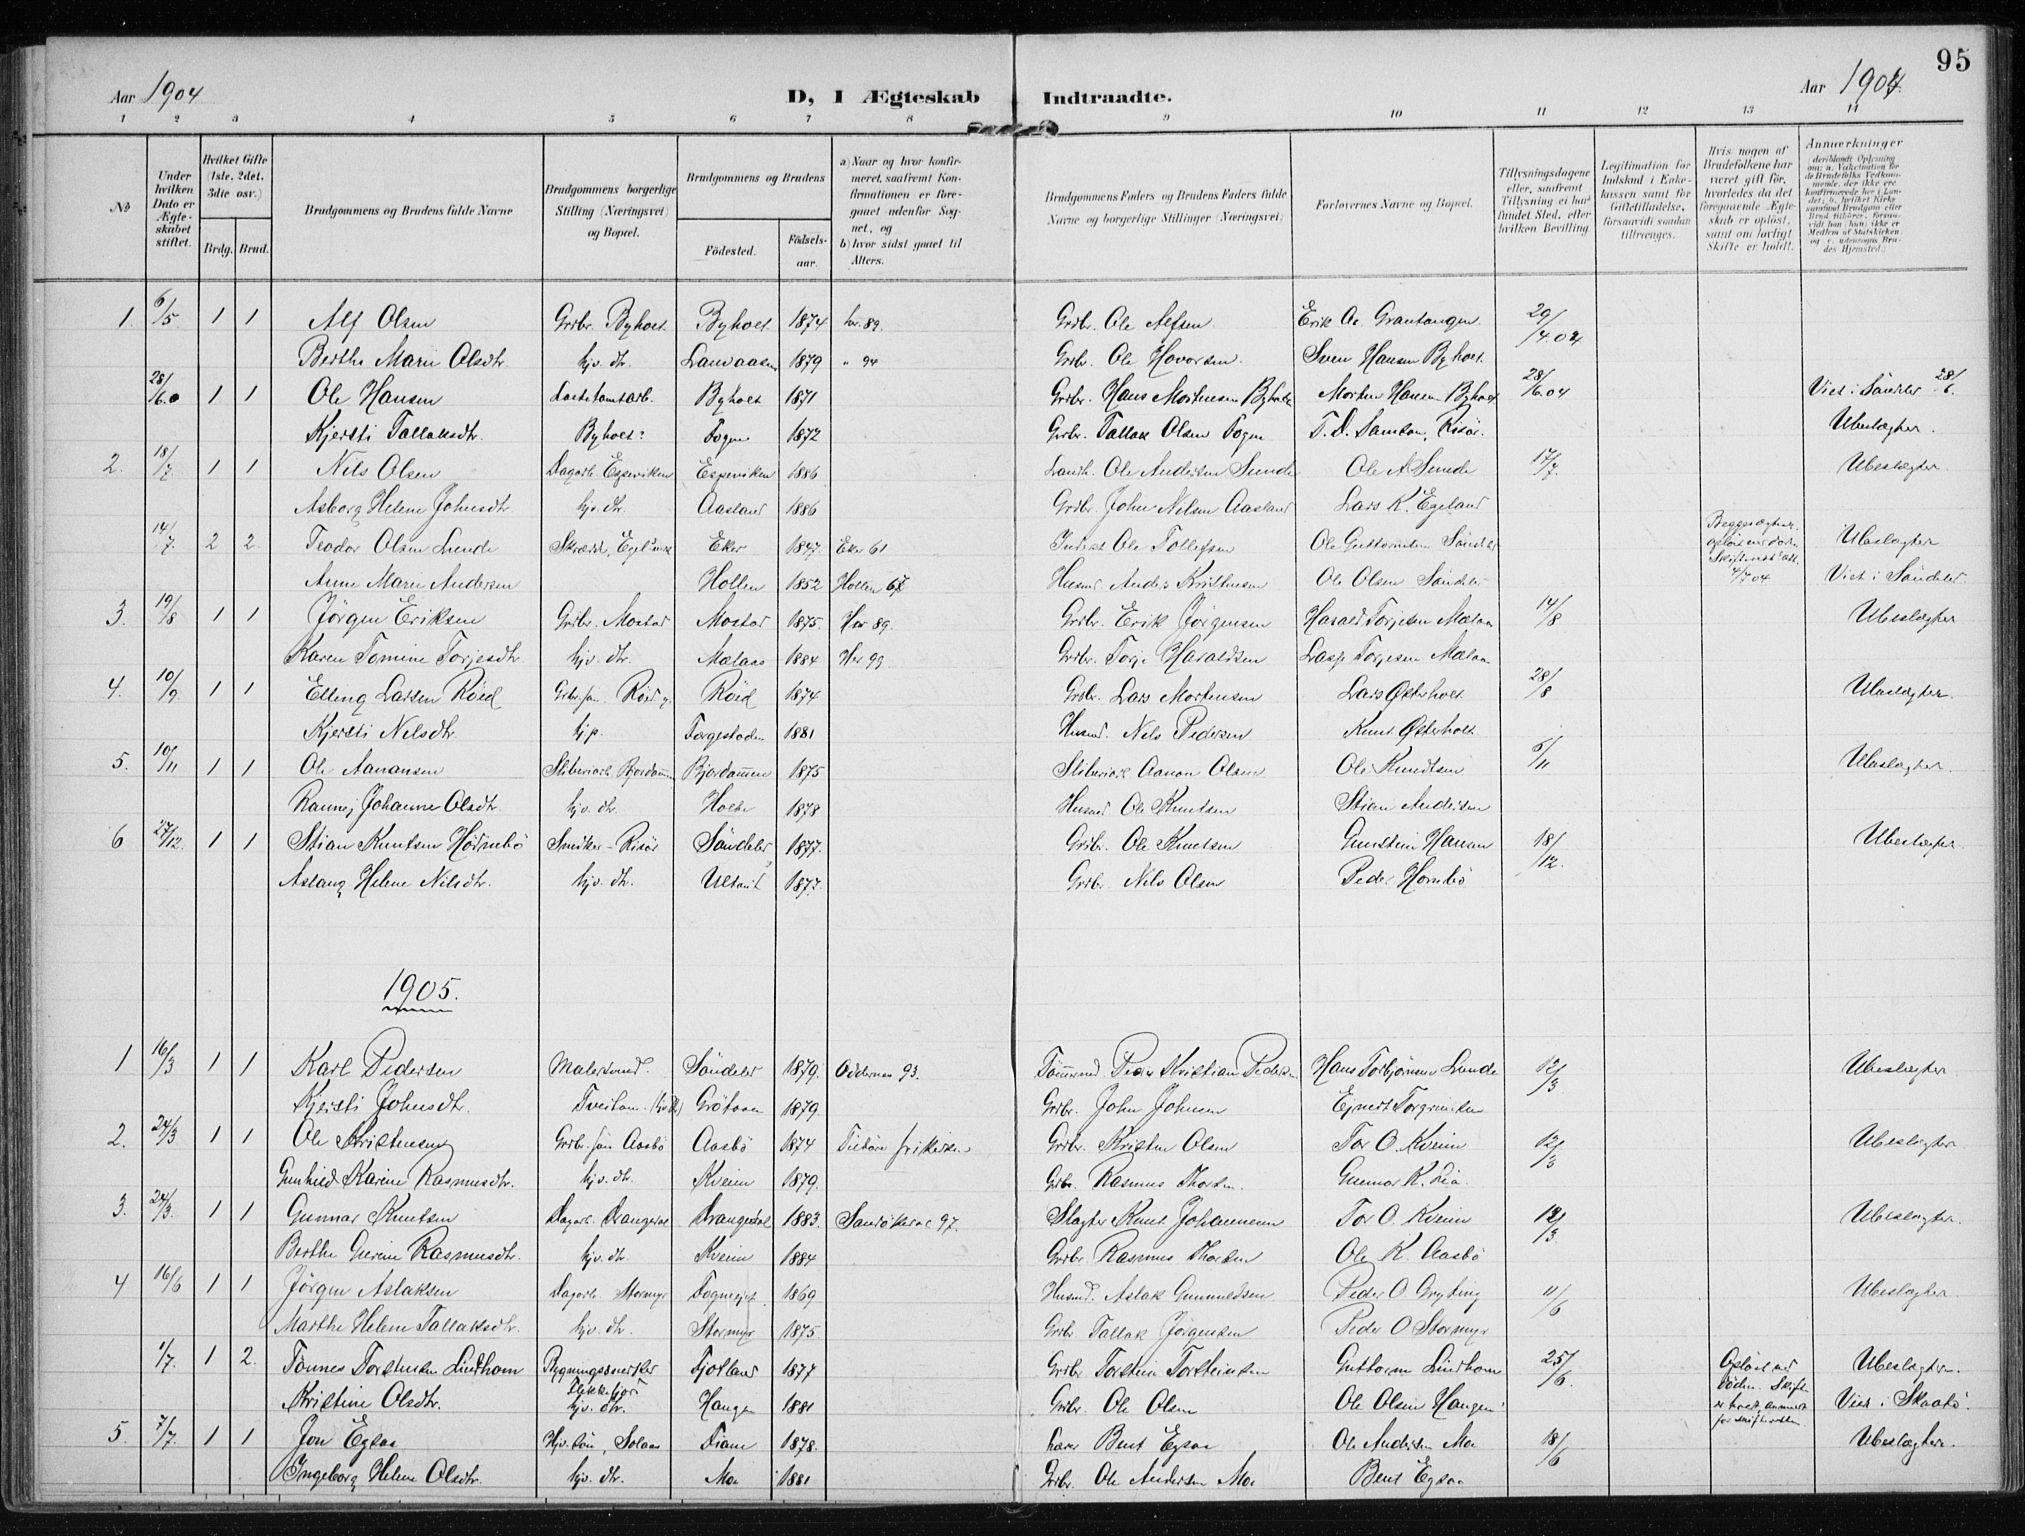 95
Aar 1904 D, I Ægteskab Indtraadte. Aar 1904.
1 2 3 4 5 6 7 8 9 10 11 12 13 14
No
Under hvilken Dato er Ægteskabet stiftet.
Hvilket Gifte (1ste. 2det. 3die osv.)
Brdg. Brud.
Brudgommens og Brudens fulde Navne
Brudgommens borgerlige Stilling (Næringsvei) og Bopæl.
Brudgommens og Brudens
Fødested. Fødselsaar.
a) Naar og hvor konfirmeret, saafremt Konfirmationen er foregaaet udenfor Sognet, og
b) hvor sidst gaaet til Alters.
Brudgommens Faders og Brudens Faders fulde Navne og borgerlige Stillinger (Næringsvei)
Forlovernes Navne og Bopæl.
Tillysningsdagene eller, saafremt Tillysning ei har fundet Sted, efter hvilken Bevilling.
Legitimation for Indskud i Enkekassen samt for Giftetilladelse, forsaavidt saadan tiltrænges.
Hvis nogen af Brudefolkene har været gift før, hvorledes da det foregaaende Ægteskab er opløst, samt om lovligt Skifte er holdt.
Anmærkninger
1. 6/5 1 1 Alf Olsen Grdbr. Byholt Byholt 1874 her 89. Grdbr. Ole Alfsen Erik Ol. Grantangen 29/4.04
Berthe Marie Olsdtr. hjv. dtr. Landaasen 1879 " 94 Grdbr. Ole Hovorsen. Sven Hansen Byholt
28/6 1 1 Ole Hansen Byholt 1871 Grdbr. Hans Mortensen Byholt Morten Hansen Byholt 28/6.04 Viet i Søndeler 28/6.
Kjersti Tallaksdtr. Byholt Fogne 1872 Grdbr. Tallak Olsen Fogne T. D. Samson, Risør. Ubeslægtet.
2. 18/7 1 1 Nils Olsen Dagarb. Espeviken Espeviken 1886 Landh. Ole Andersen Sunde Ole A Sunde 17/7. Ubeslægtet.
Asborg Helene Johnsdtr hjv. dtr. Aasland 1886 Grdbr. John Nilsen Aasland Lars K. Egeland
14/7. 2 2. Teodor Olsen Lunde Skrædd, Eker 1847. Eker 61 Inderst Ole Tollefsen Ole Guttormsen Søndeler 4/7 04 Ubeslægtet
Anne Marie Andersen Hollen 1852 Hollen 67 Husmd. Anders Kristensen Ole Olsen Søndeler Viet i Søndeler.
3. 19/8 1 1 Jørgen Eriksen Grdbr. Mostad Mostad 1875. Her 89. Grdbr. Erik Jørgensen Harald Torjesen Mælaas 14/8 Ubeslægtet
Karen Tomine Torjesdtr hjv. dtr. Mælaas 1884 Her 99 Grdbr. Torje Haraldsen Torjesen Mælaas
4. 10/9. 1 1 Elling Larsen Röed Grbr. søn. Röed Röed 1874 Grdbr. Lars Mortensen Lars Østerholt 28/8 Ubeslægtet.
Kjersti Nilsdtr. hjp. Torgestaden 1881 Husmd. Nils Pedersen Knut Østerholt
5. 10/11 1 1 Ole Aanansen Sliberiarb. Bjordammen Bjordammen 1875 Sliberiarb Aanon Olsen Ole Knudtsen 5/11 Ubeslægtet.
Rannej Johanne Olsdtr. hjv. dtr. Holte 1878 Husmd Ole Knutsen Stian Andersen
6 27/12. 1 1 Stian Knutsen Hødnebø Snedker - Risør Søndeler 1877. Grdbr. Ole Knutsen Gunstein Hansen 18/12. Ubeslægtet.
Aslaug Helene Nilsdtr. hjv. dtr. 1877. Grdbr. Nils Olsen Peder Hornbø
1905.
1 16/3 1 1 Karl Pedersen Malersvend. Søndeler 1879. Oddernes 93. Tømmermd Peder Kristian Pedersen Hans Torbjörnsen Lunde 12/3 Ubeslægtet.
Kjersti Johnsdtr. Tveitan. Grötaaen 1879. Grdbr. John Johnsen Ejvert Torgrimsen
2. 24/3 1 1 Ole Kristensen Grdbr. søn Aasbö Aasbö 1874 Grdbr. Kristen Olsen Tor O. Kveim 12/3 Ubeslægtet.
Gunhild Karine Rasmusdtr. hjv. dtr. Kveim 1879. Grbr. Rasmus Thorsen. Gunnar K. Lia.
3. 24/3. 1 1 Gunnar Knutsen Dagarb. Drangedal Drangedal 1883. Sandökedal 97. Slagter Knut Johannesen Tor O. Kveim 12/3. Ubeslægtet.
Berthe Gurine Rasmusdtr. hjv. dtr Kveim 1884 Grdbr Rasmus Thorsen Ole K. Aasbö
4 16/6 1 1 Jörgen Aslaksen Dagarb. Stormyr 1869 Husmd. Aslak Gunnuldsen Peder O Gryting 11/6 Ubeslægtet.
Marthe Helene Tallaksdtr. hjv. dtr. Stormyr 1875. Grdbr Tallak Jörgensen Peder O Stormyr
1/7. 1 2. Tönnes Torsteinsen Lindhom Bygningssnedker Flekkefjord Fjotland 1877 Grdbr Torstein Torsteinsen Guttorm Lindhom 25/6. Opløst ved Döden. Skifte Ubeslægtet.
Kristine Olsdtr. hjv. dtr. Haugen 1881 Grdbr. Ole Olsen Ole Olsen Haugen Viet i Skaatö.
5. 7/7. 1 1 Jon Egsaa Hjv. sön, Solaas Fiane 1878. Bent Egsaa Ole Andersen Moe 18/6 Ubeslægtet.
Ingeborg Helene Olsdtr. hjv. dtr. Moe 1881 Grdbr. Ole Andersen Moe Bent Egsaa